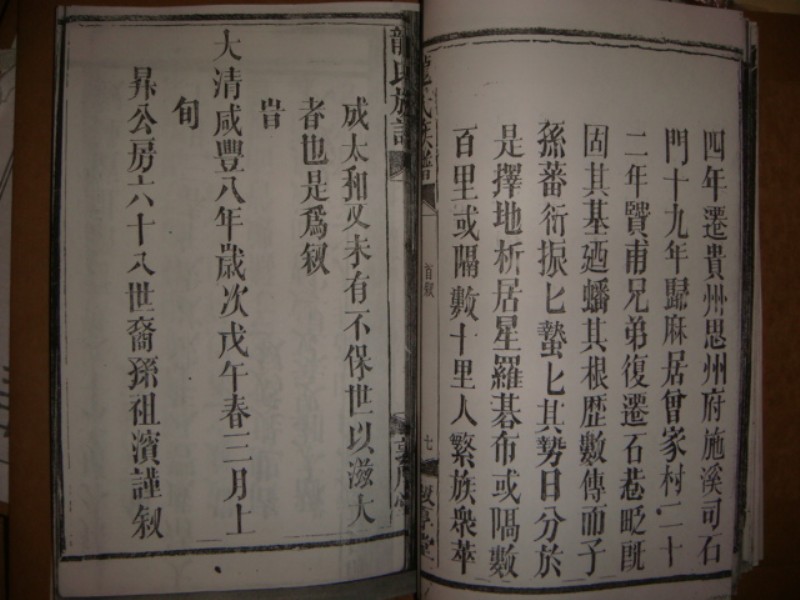 四年遷貴州思州府施溪司石
門十九年歸麻居曾家村二十
二年贒甫兄弟復遷石巷畈旣
固其基廼蟠其根歷數傳而子
孫蕃衍振匕蟄匕其勢日分於
是擇地析居星羅碁布或隔數
百里或隔數十里人繁族衆華
首叙
七
龍氏族譜
成太和又未有不保世以滋大
者也是爲叙
旹
大清咸豐八年歲次戊午春三月上
旬
昇公房六十八世裔孫祖濱謹叙